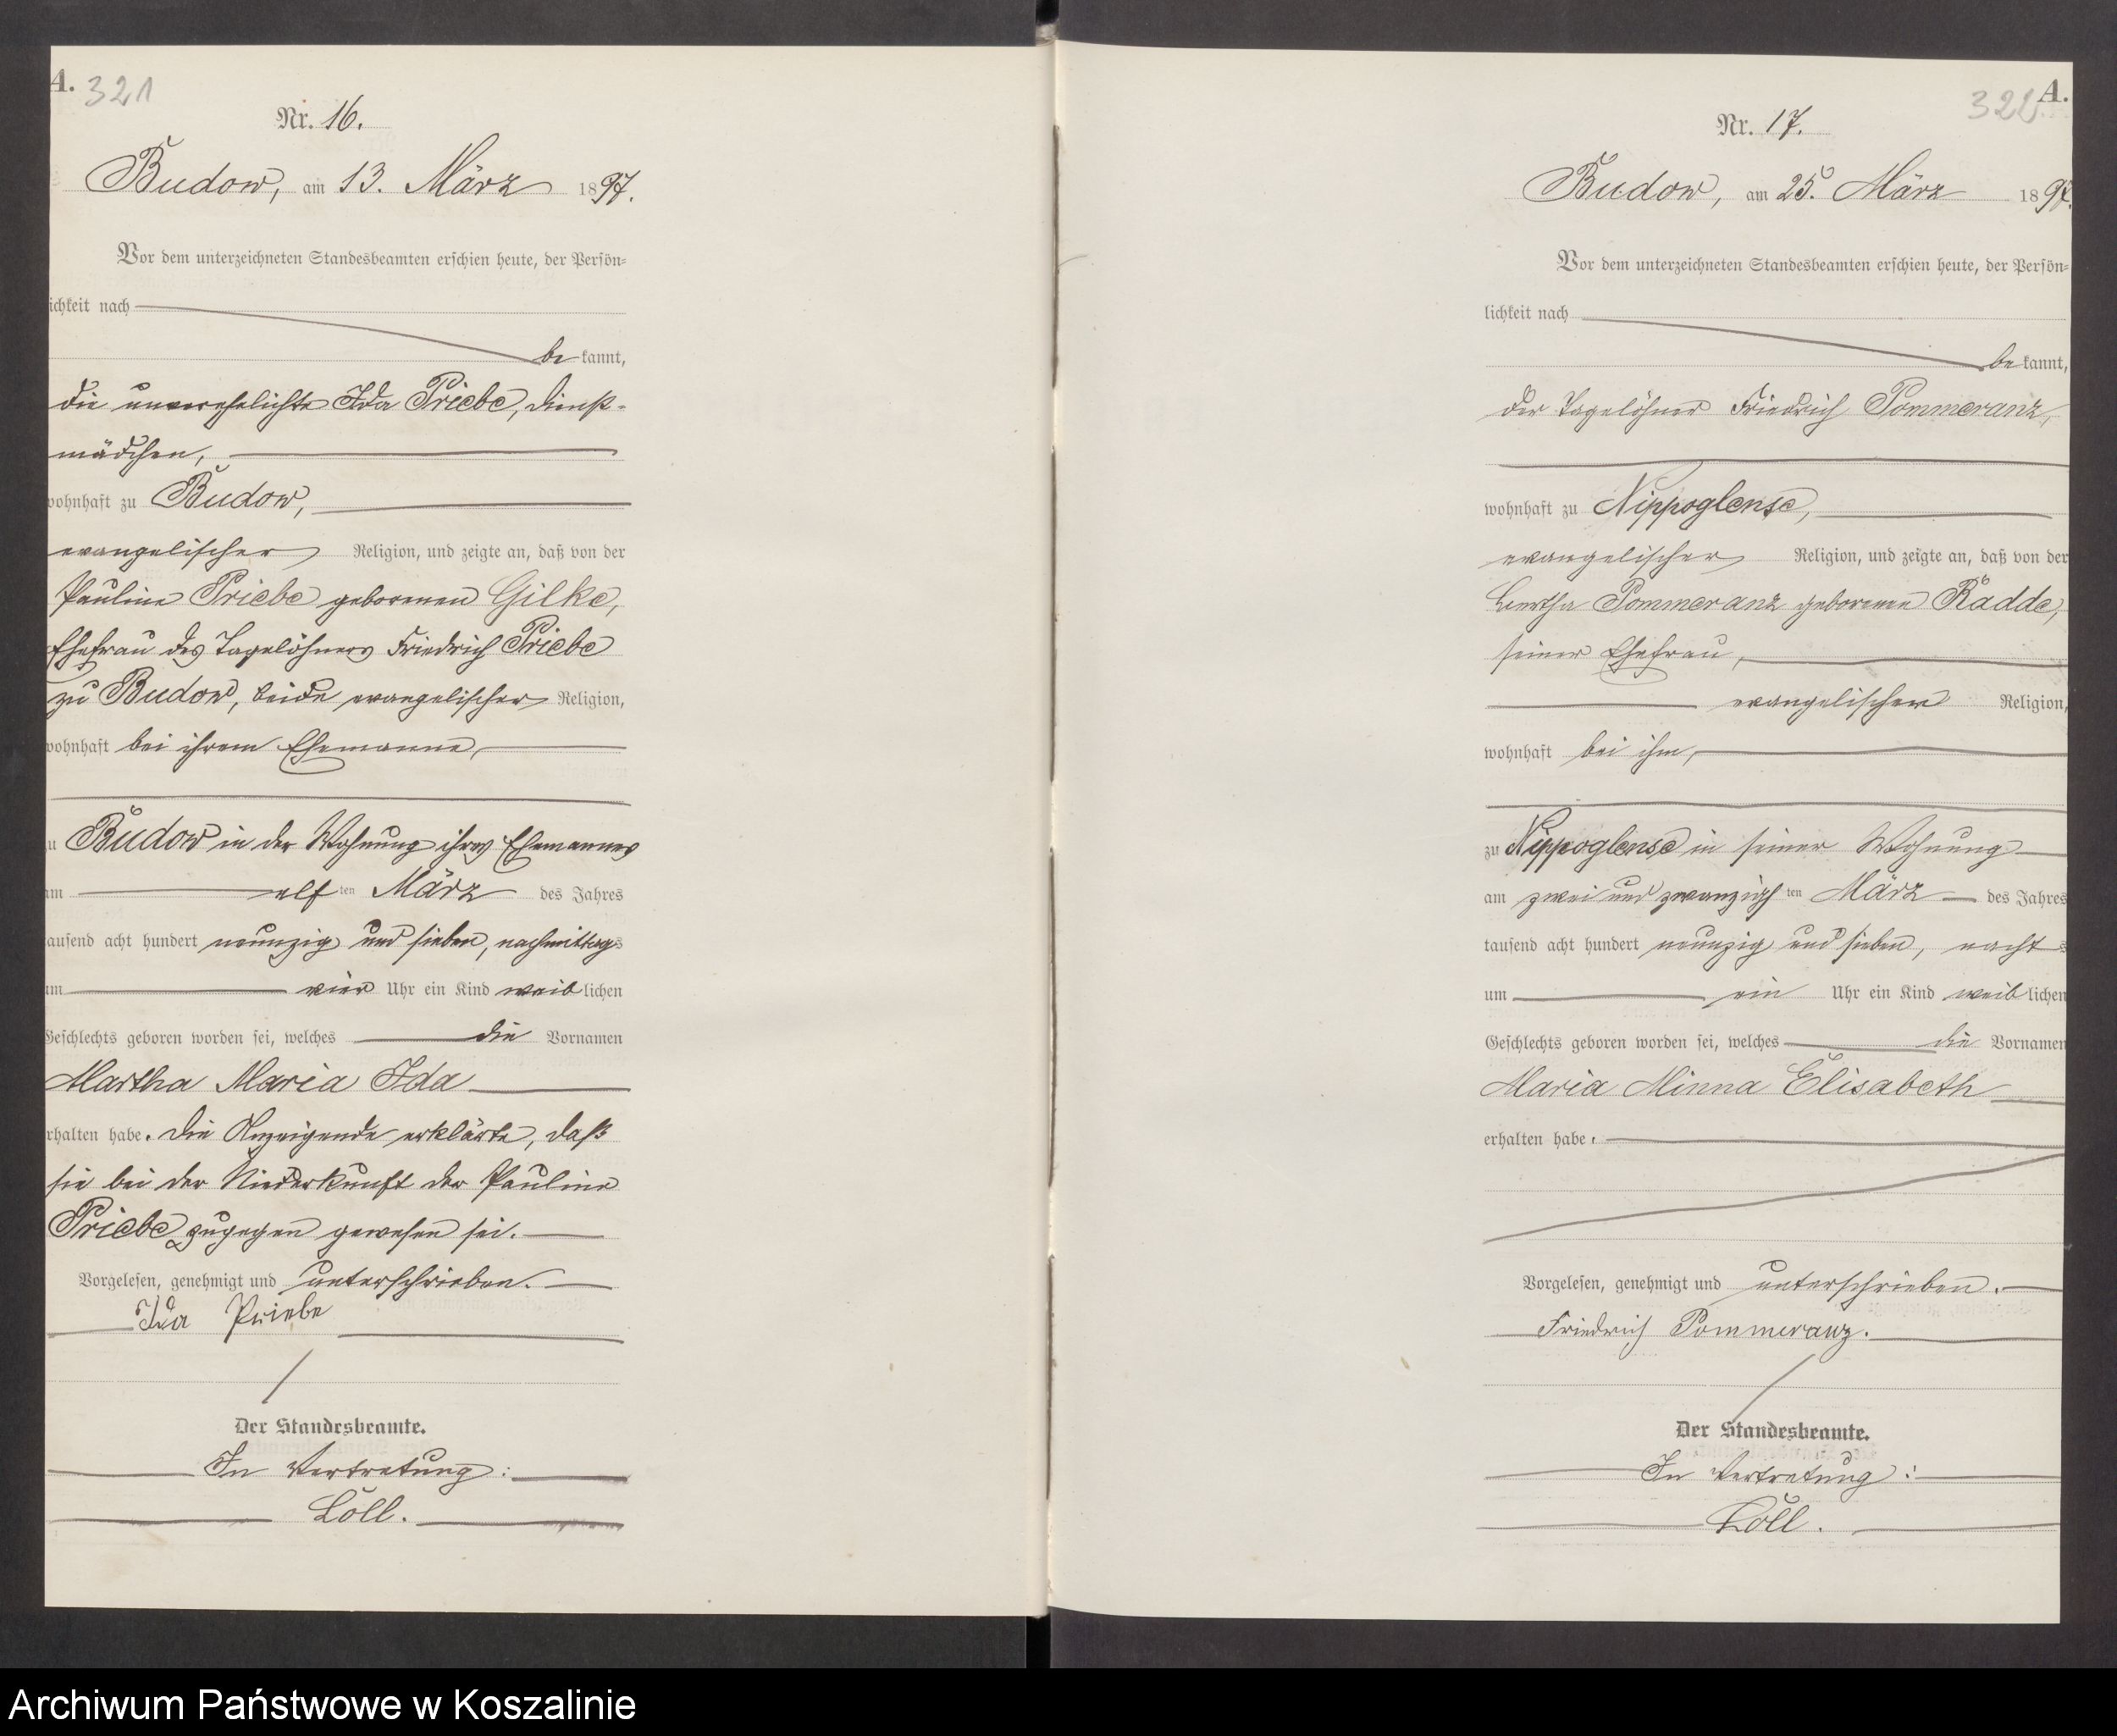 A. 321
Nr. 16.
Budow, am 13. März 1897.
Vor dem unterzeichneten Standesbeamten erschien heute, der Persön-
ichkeit nach
be kannt,
die unverehelichte Ida Priebe, Dienst-
mädchen,
wohnhaft zu Budow,
evangelischer Religion, und zeigte an, daß von der
Pauline Priebe geborenen Gilke,
Ehefrau des Tagelöhners Friedrich Priebe
zu Budow, beide evangelischer Religion,
wohnhaft bei ihrem Ehemanne,
zu Budow in der Wohnung ihres Ehemannes
am elf ten März des Jahres
tausend acht hundert neunzig und sieben, nachmittags
um vier Uhr ein Kind weib lichen
Geschlechts geboren worden sei, welches die Vornamen
Martha Maria Ida
erhalten habe. Die Anzeigende erklärte, daß
sie bei der Niederkunft der Pauline
Priebe zugegen gewesen sei.
Vorgelesen, genehmigt und unterschrieben.
Ida Priebe
Der Standesbeamte.
In Vertretung:
Löll.
322 A.
Nr. 17.
Budow, am 25. März 1897.
Vor dem unterzeichneten Standesbeamten erschien heute, der Persön-
lichkeit nach
be kannt,
der Tagelöhner Friedrich Pommeranz,
wohnhaft zu Nippoglense,
evangelischer Religion, und zeigte an, daß von der
Bertha Pommeranz geborene Radde,
seiner Ehefrau,
evangelischer Religion,
wohnhaft bei ihm,
zu Nippoglense in seiner Wohnung
am zwei und zwanzigs ten März des Jahres
tausend acht hundert neunzig und sieben, nacht s
um ein Uhr ein Kind weib lichen
Geschlechts geboren worden sei, welches die Vornamen
Maria Minna Elisabeth
erhalten habe.
Vorgelesen, genehmigt und unterschrieben.
Friedrich Pommeranz.
Der Standesbeamte.
In Vertretung:
Löll.
Archiwum Państwowe w Koszalinie